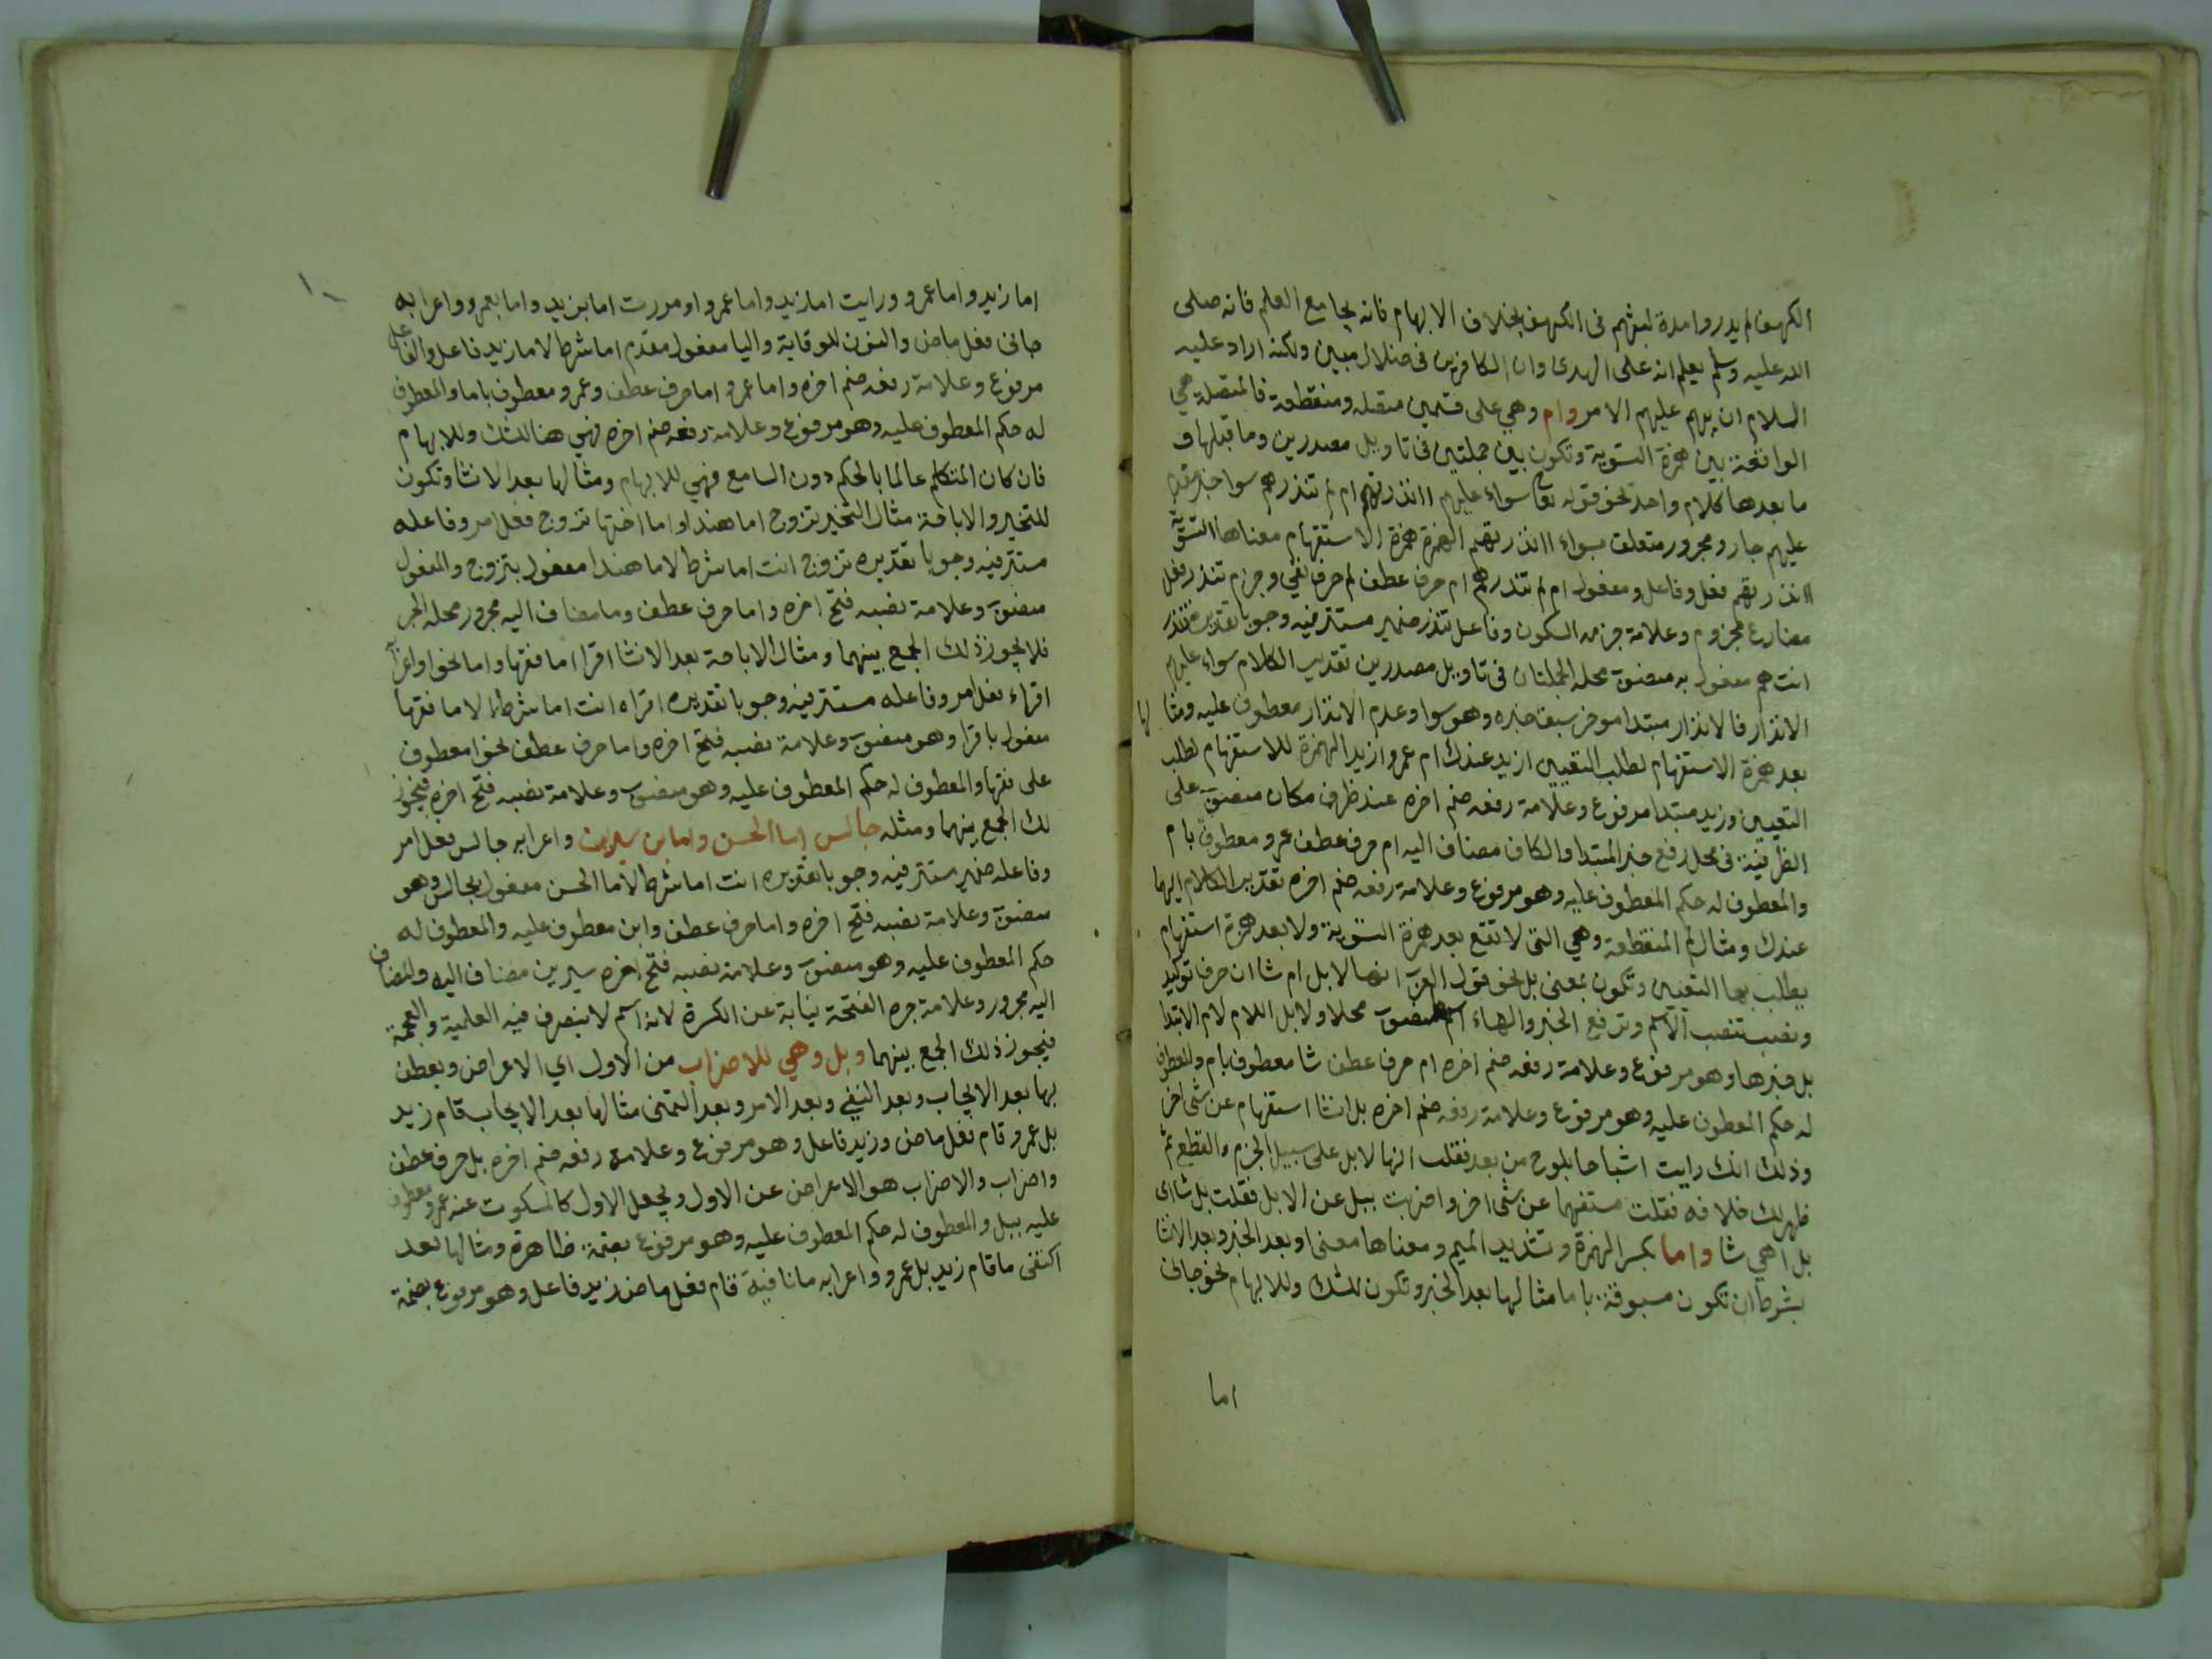 الكهف لم يدروا مدة لبثهم فى الكهف بخلاف الابهام فانه يجامع العلم فانه صلى
الله عليه وسلم يعلم انه على الهدى وان الكافرين فى ضلال مبين ولكنه اراد عليه
السلام ان يبهم عليهم الامر وام وهي على قسمين متصله ومنقطعة فالمتصلة هي
الواقعة بين همزة التسوية وتكون بين جملتين فى تاويل مصدرين وما قبلها و
ما بعدها كلام واحد نحو قوله تعا سواء عليهم اانذرتهم ام لم تنذرهم سوا خبر مقدم
عليهم جار ومجرور متعلق بسواء اانذرتهم الهمزة همزة الاستفهام معناها التسوية
اانذرتهم فعل وفاعل ومفعول ام لم تنذرهم ام حرف عطف لم حرف نفي وجزم تنذر فعل
مضارع مجزوم وعلامة جزمه السكون وفاعل تنذر ضمير مستتر فيه وجوبا تقديره تنذر
انت هم مفعول به منصوب محله الجملتان فى تاويل مصدرين تقديب الكلام سواء عليهم
الانذار فالانذار مبتدا موخر سبق خبره وهو سوا وعدم الانذار معطوف عليه ومثالها
بعد همزة الاستفهام لطلب التعيين ازيد عندك ام عمرو ازيد الهمزة للاستفهام لطلب
التعيين وزيد مبتدا مرفوع وعلامة رفعه ضم اخره عند ظرف مكان منصوب على
الظرفية فى محل رفع خبر المبتدا والكاف مضاف اليه ام حرف عطف عمرو معطوف بام
والمعطوف له حكم المعطوف عليه وهو مرفوع وعلامة رفعه ضم اخره تقدير الكلام ايهما
عندك ومثال ام المنقطعة وهي التى لا تقع بعد همزة التسوية ولا بعد همزة استفهام
يطلب بها التعيين وتكون بمعنى بل نحو قول العرب انها لابل ام شا ان حرف توكيد
ونصب تنصب الاسم وترفع الخبر والهاء اسم منصوب محلا ولابل اللام لام الابتدا
بل خبرها وهو مرفوع وعلامة رفعه ضم اخره ام حرف عطف شا معطوف بام والمعطوف
له حكم المعطوف عليه وهو مرفوع وعلامة رفعه ضم اخره بل انشا استفهام عن شى اخر
وذلك انك رايت اشباحا بلوح من بعد فقلت انها لابل على سبيل الجزم والقطع ثم
ظهر لك خلافه فقلت مستفهما عن شى اخر واضربت ببل عن الابل فقلت بل شا اى
بل اهي شا واما بكسر الهمزة وتشديد الميم ومعناها معنى او بعد الخبر وبعد الانشا
بشرط ان تكون مسبوقة باما مثالها بعد الخبر وتكون للشك وللابهام نحو جانى
اما
١٠
اما زيد واما عمرو ورايت اما زيد واما عمرو او مررت اما بزيد واما بعمرو واعرابه
جانى فعل ماض والنون للوقاية واليا مفعول مقدم اما شرط لاما زيد فاعل والفاعل
مرفوع وعلامة رفعه ضم اخره واما عمرو اما حرف عطف وعمرو معطوف باما والمعطوف
له حكم المعطوف عليه وهو مرفوع وعلامة رفعه ضم اخره فهي هنا للشك وللابهام
فان كان المتكلم عالما بالحكم دون السامع فهي للابهام ومثالها بعد الانشا وتكون
للتخير والاباحة مثال التخير تزوج اما هندا واما اختها تزوج فعل امر وفاعله
مستتر فيه وجوبا تقديره تزوج انت اما شرط لاما هندا مفعول بتزوج والمفعول
منصوب وعلامة نصبه فتح اخره واما حرف عطف وما مضاف اليه مجرور محله الجر
فلا يجوز ذلك الجمع بينهما ومثال الاباحة بعد الانشا اقرا اما فقها واما نحوا واعرابه
اقراء فعل امر وفاعله مستتر فيه وجوبا تقديره اقراه انت اما شرط لاما فقها
مفعول باقرا وهو منصوب وعلامة نصبه فتح اخره واما حرف عطف نحوا معطوف
على فقها والمعطوف له حكم المعطوف عليه وهو منصوب وعلامة نصبه فتح اخره فيجوز
لك الجمع بينهما ومثله جالس اما الحسن واما بن سيرين واعرابه جالس فعل امر
وفاعله ضمير مستتر فيه وجوبا تقديره انت اما شرط لاما الحسن مفعول بجالس وهو
منصوب وعلامة نصبه فتح اخره واما حرف عطف وابن معطوف عليه والمعطوف له
حكم المعطوف عليه وهو منصوب وعلامة نصبه فتح اخره سيرين مضاف اليه والمضاف
اليه مجرور وعلامة جره الفتحة نيابة عن الكسرة لانه اسم لا ينصرف فيه العلمية والعجمة
فيجوز ذلك الجمع بينهما وبل وهي للاضراب من الاول اي الاعراض ويعطف
بها بعد الايجاب وبعد النفي وبعد الامر وبعد التمنى مثالها بعد الايجاب قام زيد
بل عمرو قام فعل ماض وزيد فاعل وهو مرفوع وعلامة رفعه ضم اخره بل حرف عطف
واضراب والاضراب هو الاعراض عن الاول ويجعل الاول كالمسكوت عنه عمرو معطوف
عليه ببل والمعطوف له حكم المعطوف عليه وهو مرفوع بضمة ظاهرة ومثالها بعد
النفى ما قام زيد بل عمرو واعرابه ما نافية قام فعل ماض زيد فاعل وهو مرفوع بضمة